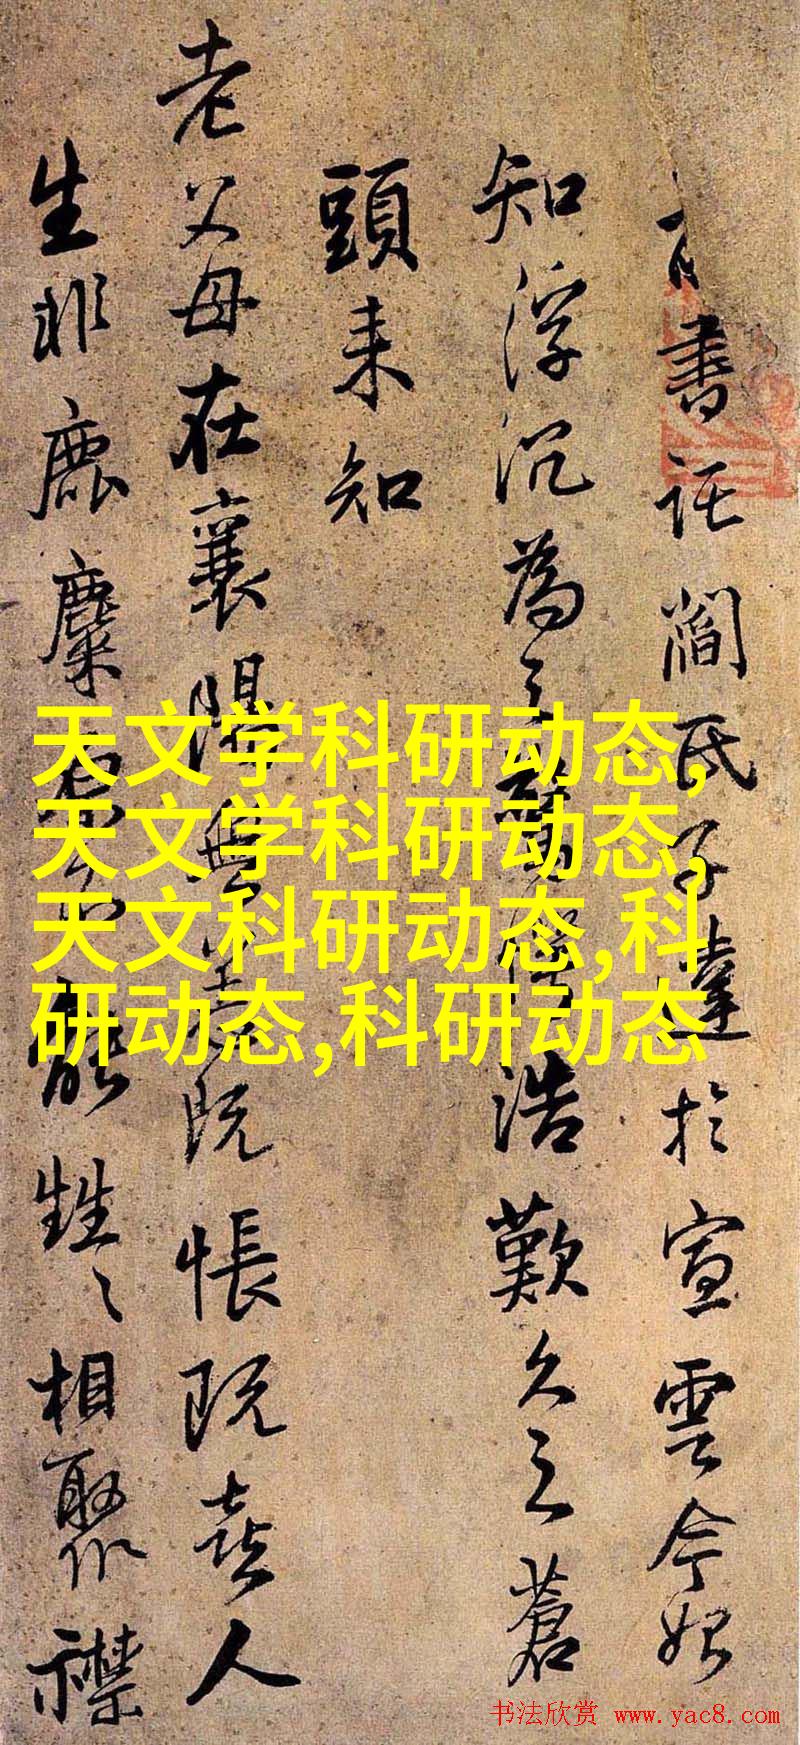 書託閻氏子達於宣雲今始
知浮沉為之
浩歎久之蒼
頭来知
老父母在襄陽
既悵既喜人
生非麋麈
能甡甡相聚襟
天文学科研动态,
天文学科研动态,
天文科研动态,科
研动态,科研动态
书法欣赏 www.yac8.com